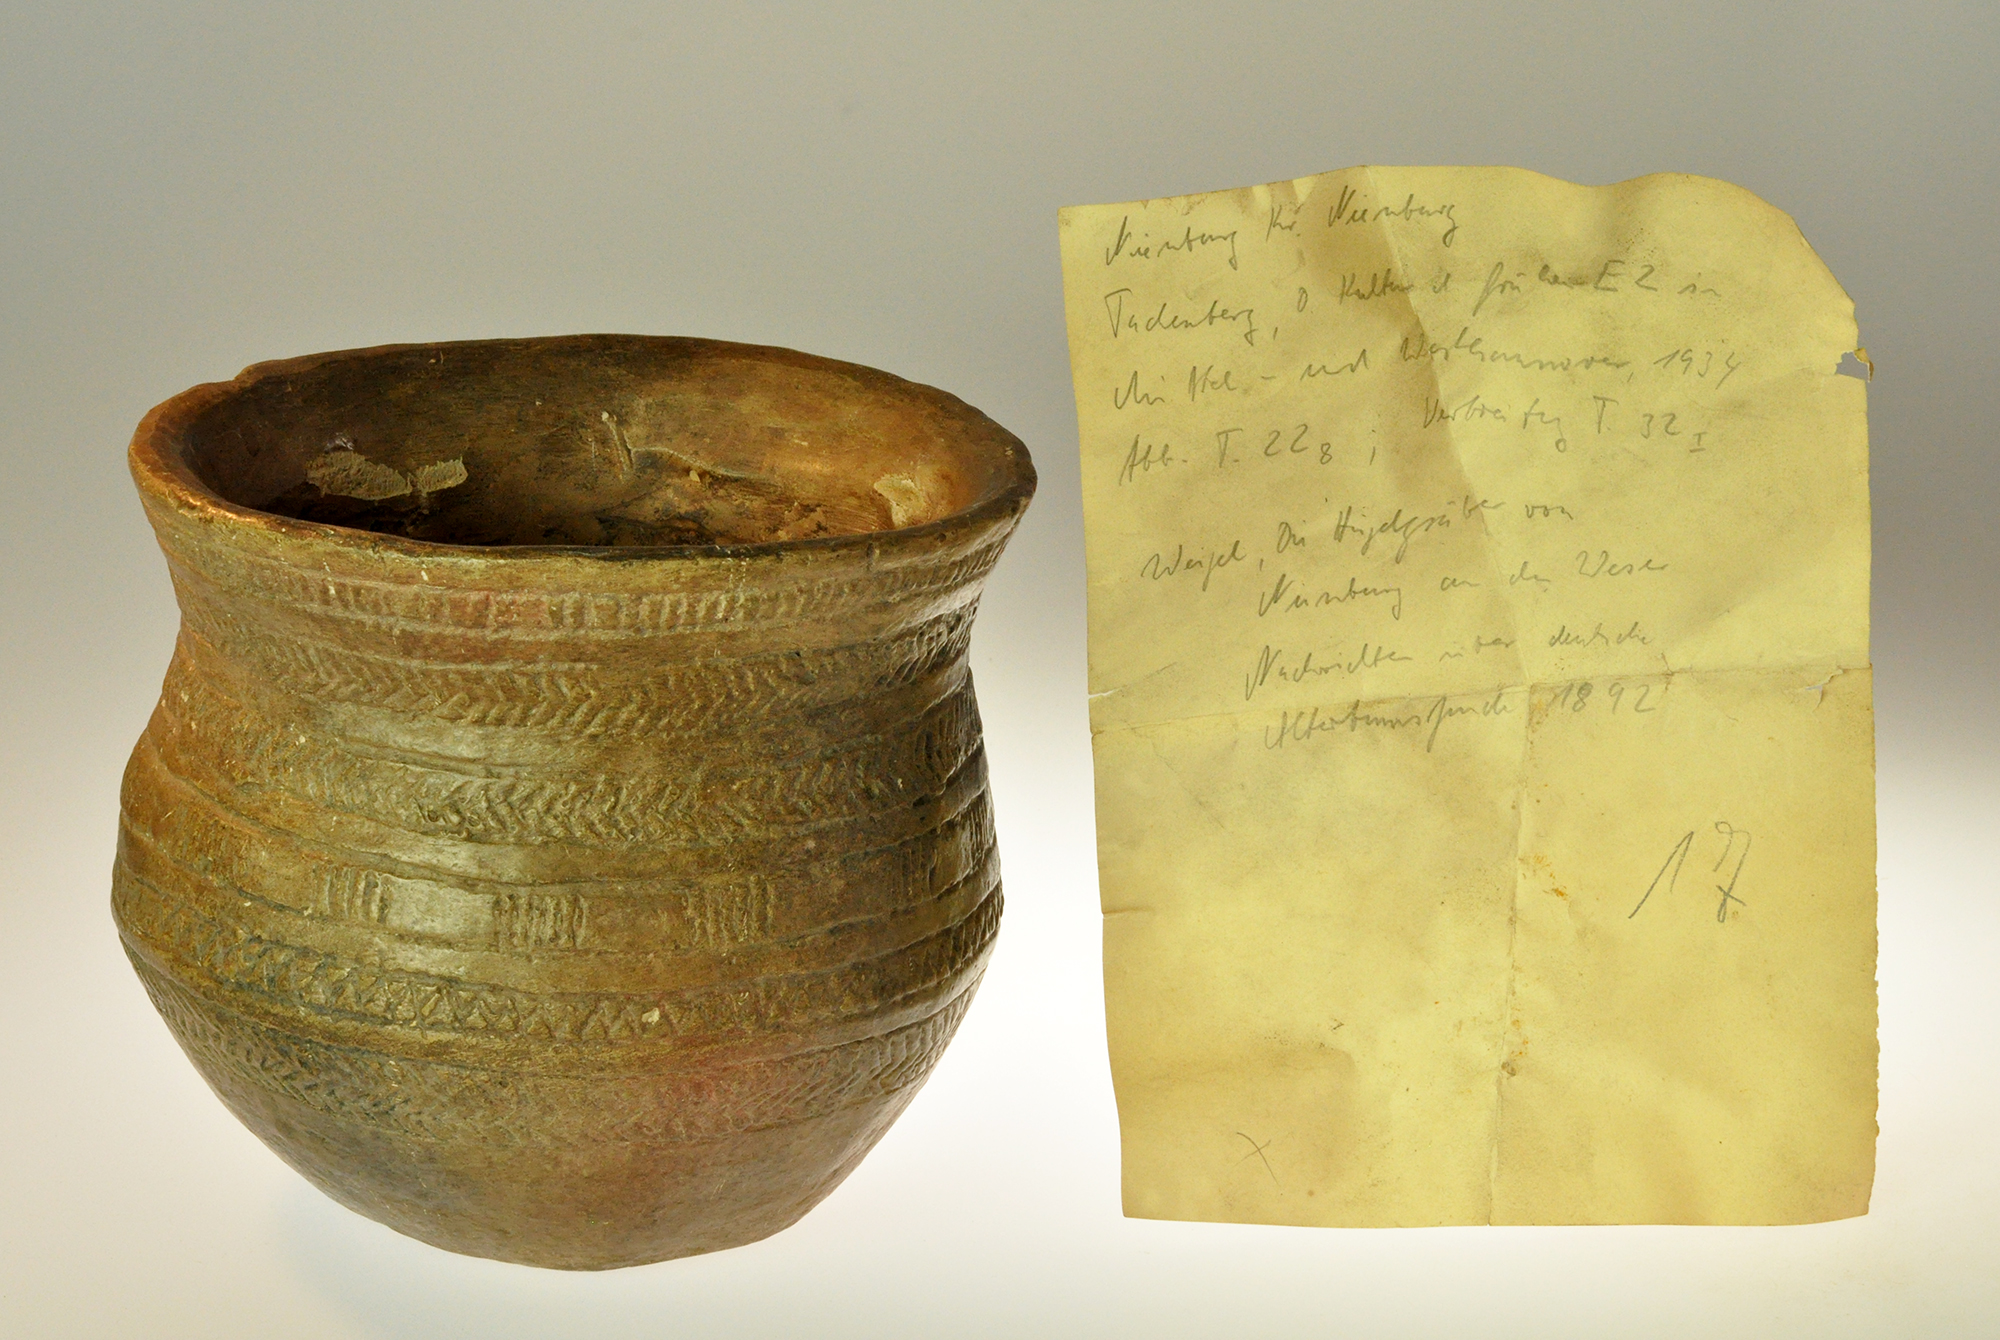 Nienburg Kr. Nienburg
Tackenberg, D Kultur d frühen EZ in
Mittel- und Westhannover, 1934
Abb. T. 22 8 ; Verbreitg T. 32 I
Weigel, Die Hügelgräber von
Nienburg an der Weser
Nachrichten über deutsche
Altertumsfunde 1892
17
x